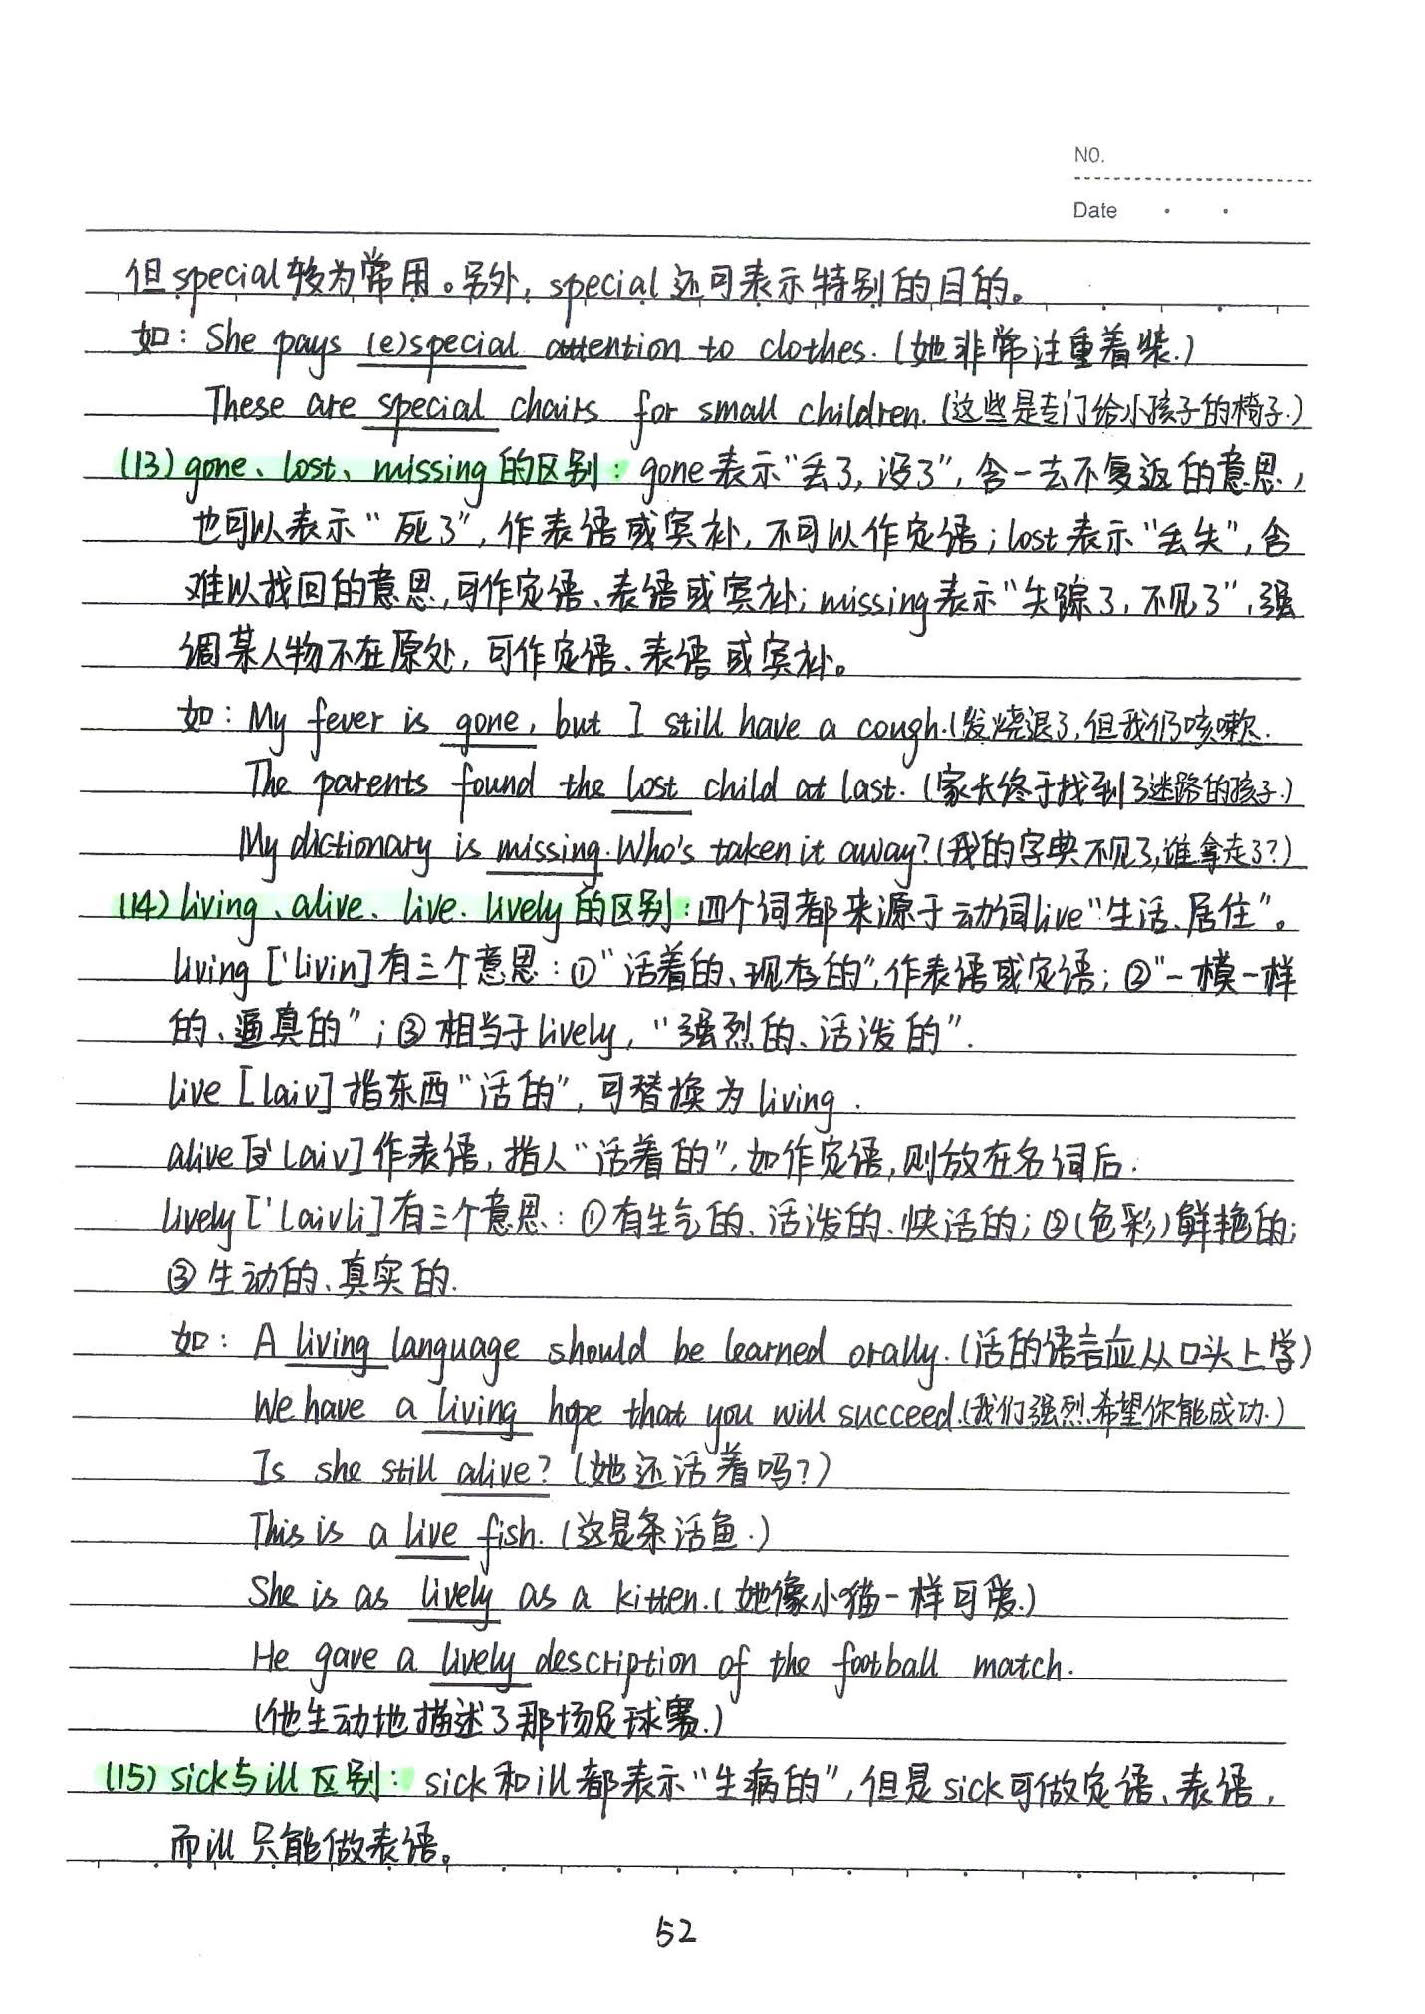 NO.
Date
但special较为常用。另外，special还可表示特别的目的。
如：She pays (e)special attention to clothes.(她非常注重着装.)
These are special chairs for small children.(这些是专门给小孩子的椅子.)
(13) gone、lost、missing的区别：gone表示“丢了,没了”,含一去不复返的意思,
也可以表示“死了”,作表语或宾补,不可以作定语;lost表示“丢失”,含
难以找回的意思,可作定语、表语或宾补;missing表示“失踪了,不见了”,强
调某人物不在原处,可作定语、表语或宾补。
如：My fever is gone, but I still have a cough.(发烧退了,但我仍咳嗽.
The parents found the lost child at last.(家长终于找到了迷路的孩子.)
My dictionary is missing. Who's taken it away?(我的字典不见了,谁拿走了?)
(14) living、alive、live、lively的区别：四个词都来源于动词live“生活、居住”。
living ['livin]有三个意思：①“活着的、现存的”,作表语或定语;②“一模一样
的、逼真的”;③相当于lively,“强烈的、活泼的”.
live [laiv]指东西“活的”,可替换为living.
alive [ə'laiv]作表语,指人“活着的”,如作定语,则放在名词后.
lively ['laivli]有三个意思：①有生气的、活泼的、快活的;②(色彩)鲜艳的;
③生动的、真实的.
如：A living language should be learned orally.(活的语言应从口头上学)
We have a living hope that you will succeed.(我们强烈希望你能成功.)
Is she still alive?(她还活着吗?)
This is a live fish.(这是条活鱼.)
She is as lively as a kitten.(她像小猫一样可爱.)
He gave a lively description of the football match.
(他生动地描述了那场足球赛.)
(15) sick与ill区别：sick和ill都表示“生病的”,但是sick可做定语、表语,
而ill只能做表语。
52